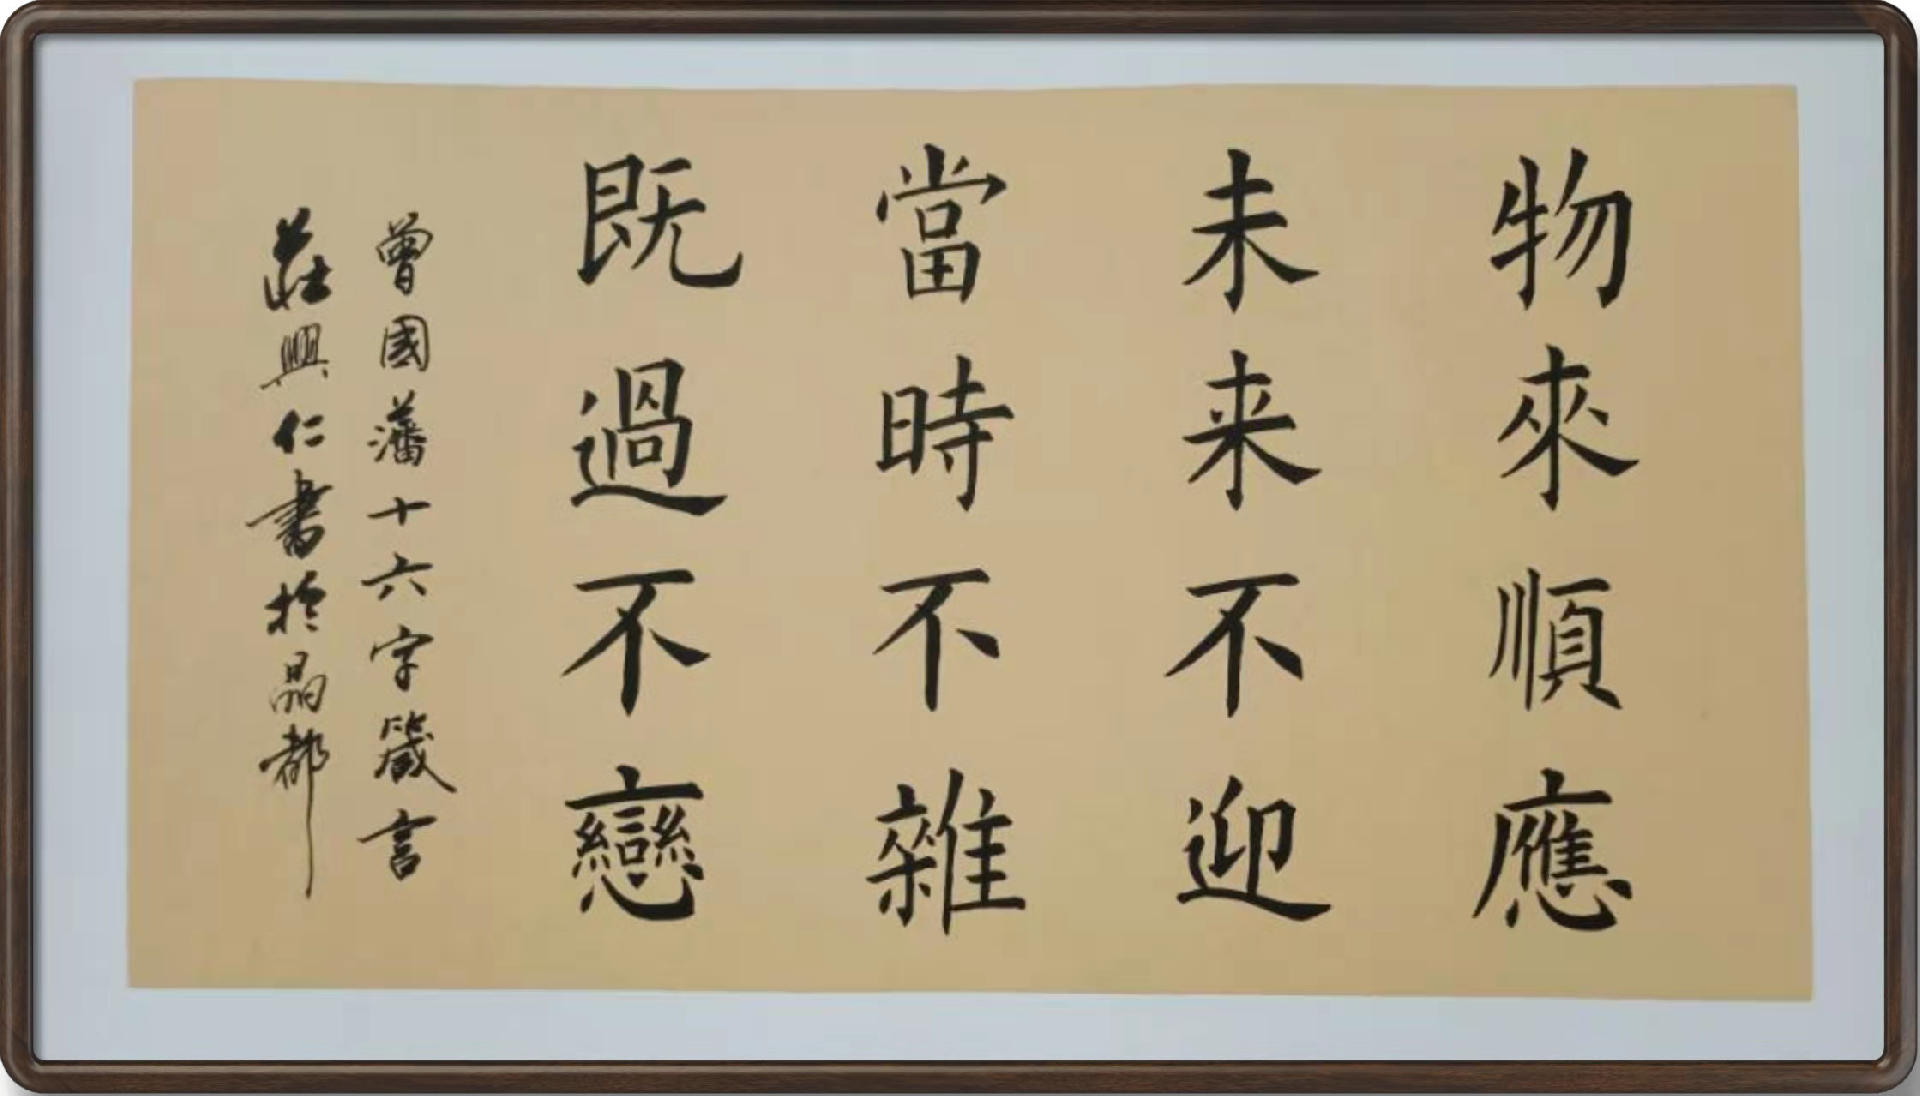 物來順應
未来不迎
當時不雜
既過不戀
曾國藩十六字箴言
莊興仁書於晶都